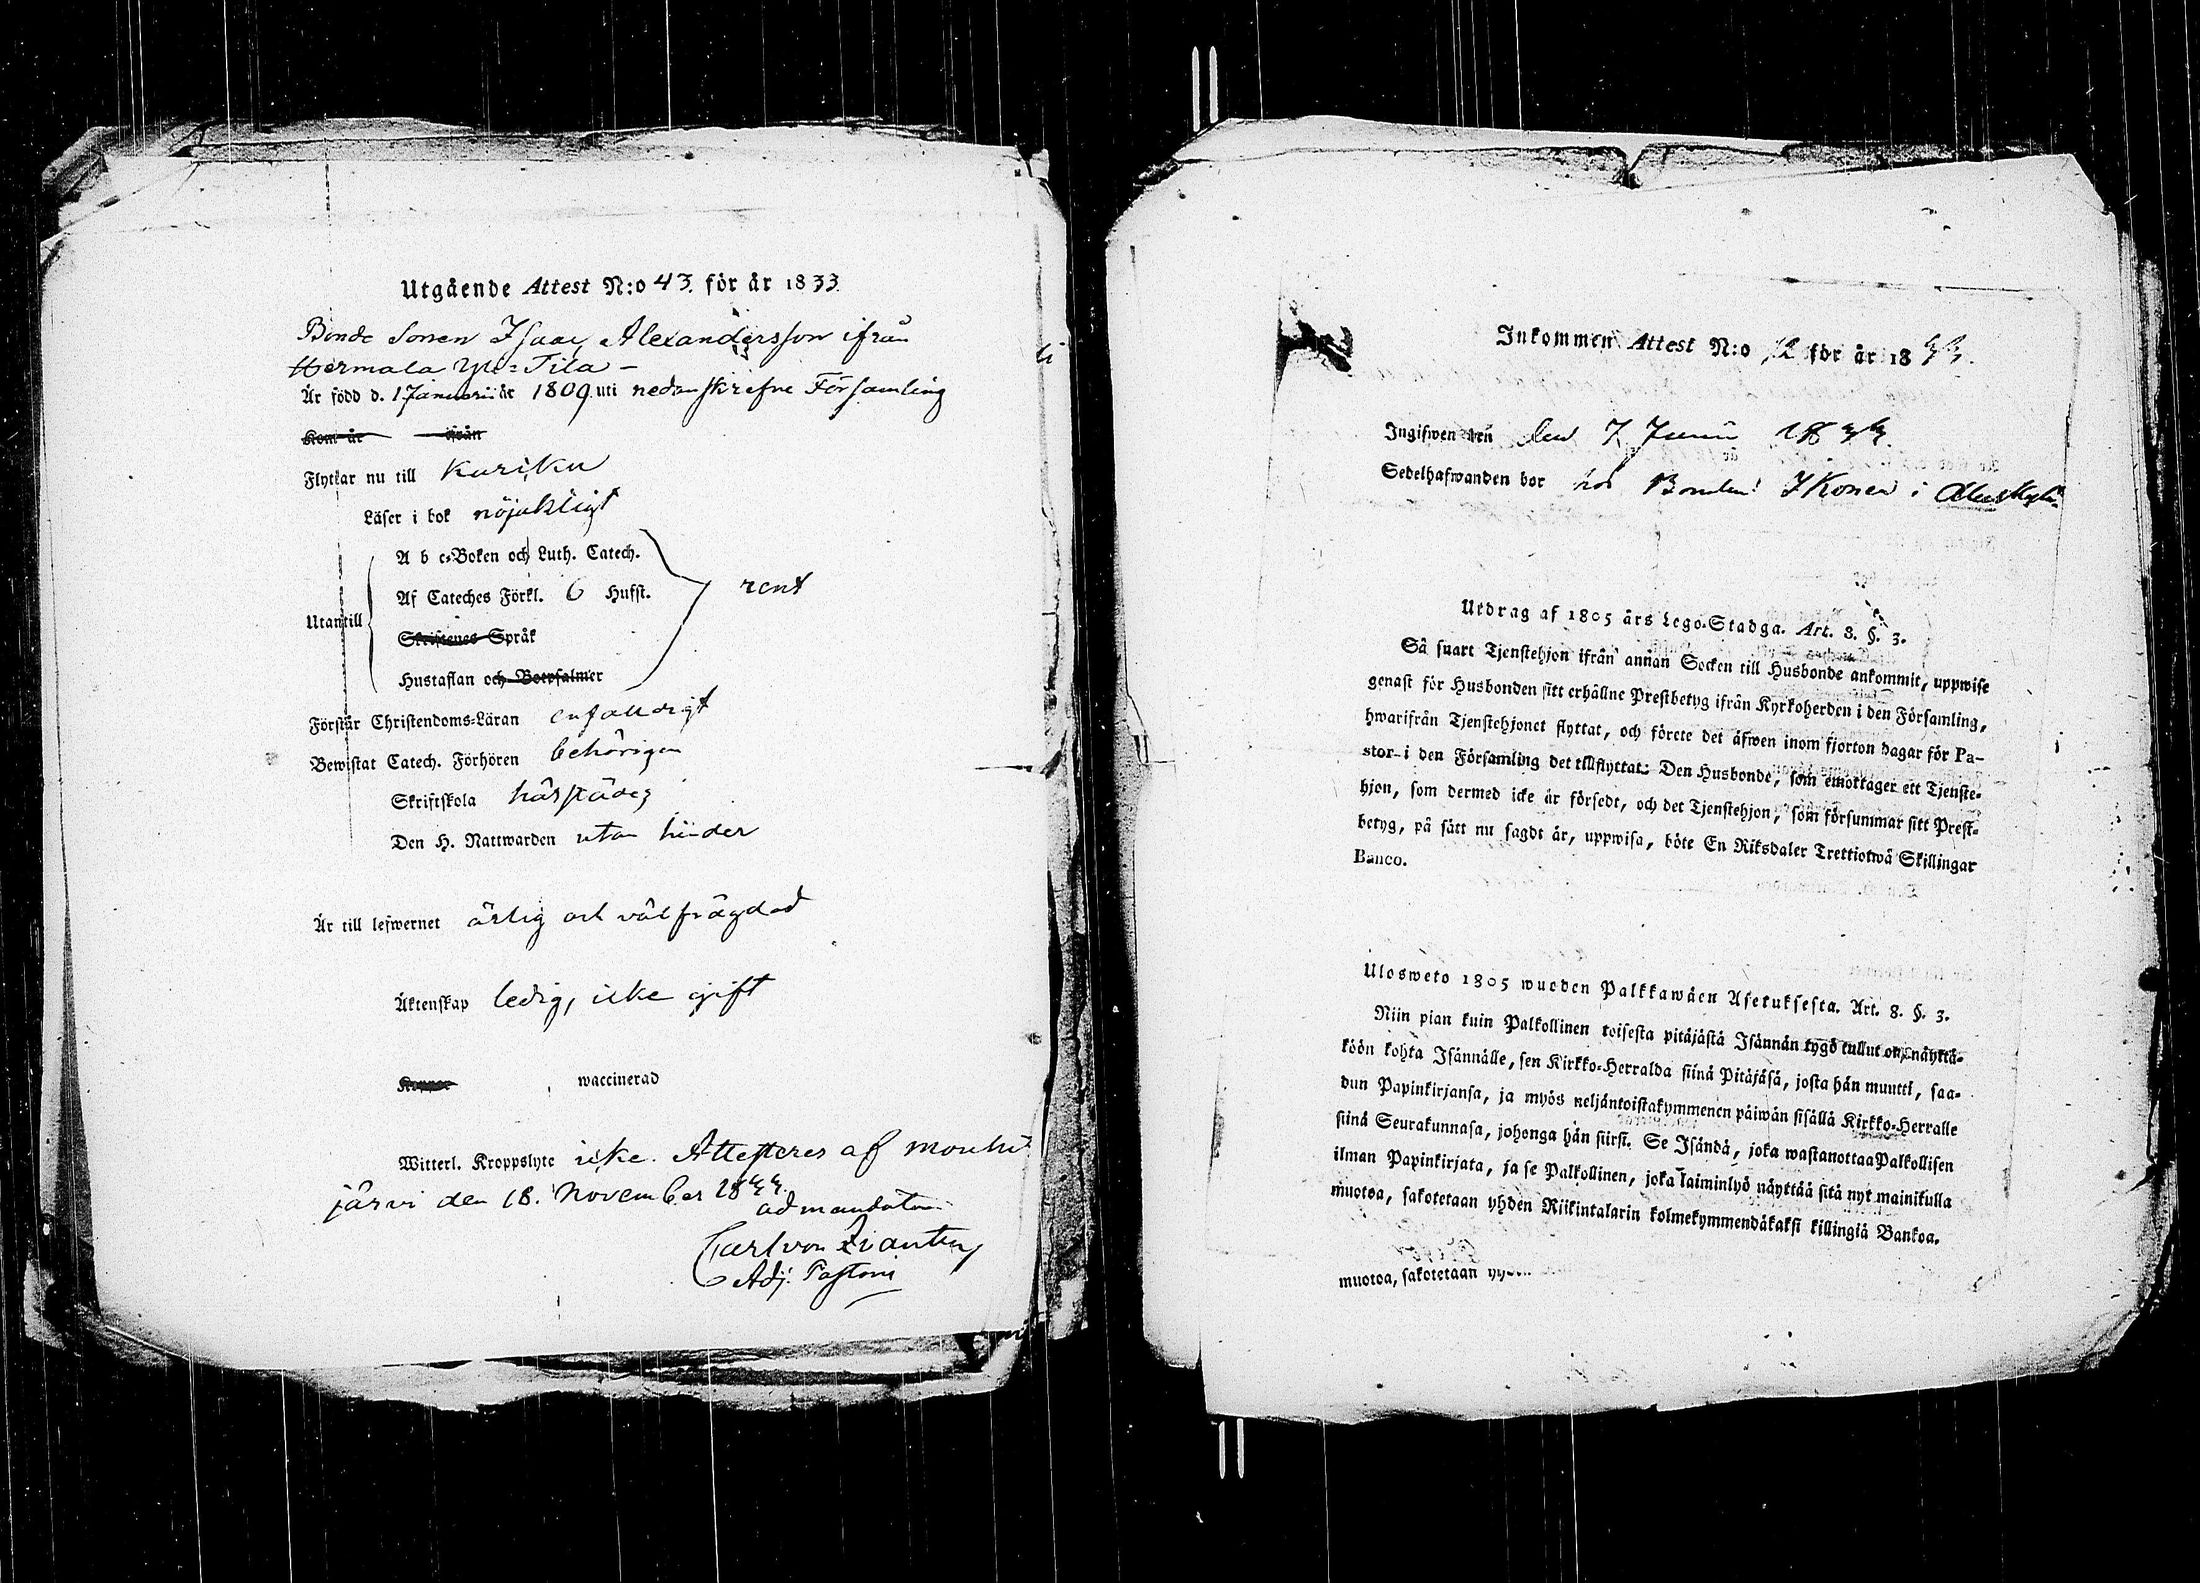 Utgående Attest N:o 43. för år 1833.
Bonde Sonen Isaac Alexandersson ifrån
Hermala Yli-Tila -
Är född d. 1 Januarii år 1809 uti nedanskrefne Församling
Kom år ifrån
Flyttar nu till Kuriku
Läser i bok nöjaktligt
A b c-Boken och Luth. Catech.
Af Cateches Förkl. 6 Hufst. rent
Utantill
Skriftenes Språk
Hustaflan och Botpsalmer
Förstår Christendoms-Läran enfaldigt
Bewistat Catech. Förhören behörigen
Skriftskola härstädes
Den H. Nattwarden utan hinder
Är till lefwernet ärlig och välfrägdad
Äktenskap ledig, icke gift
Koppor waccinerad
Witterl. Kroppslyte icke. Attesteras af Mouhi
järvi den 18. November 1833.
ad mandatum
Carl von Zianten
Adj. Pastoris
Inkommen Attest N:o 12 för år 1833.
Ingifwen den den 7 Junii 1833.
Sedelhafwanden bor hos Bonden Ikonen i
Utdrag af 1805 års Lego-Stadga. Art. 8. §. 3.
Så snart Tjenstehjon ifrån annan Socken till Husbonde ankommit, uppwise
genast för Husbonden sitt erhållne Prestbetyg ifrån Kyrkoherden i den Församling,
hwarifrån Tjenstehjonet flyttat, och förete det äfwen inom fjorton dagar för Pa-
stor i den Församling det tillflyttat: Den Husbonde, som emottager ett Tjenste-
hjon, som dermed icke är försedt, och det Tjenstehjon, som försummar sitt Prest-
betyg, på sätt nu sagdt är, uppwisa, böte En Riksdaler Trettiotwå Skillingar
Banco.
Ulosweto 1805 wuoden Palkkawäen Asetuksesta. Art. 8. §. 3.
Niin pian kuin Palkollinen toisesta pitäjästä Isännän tygö tullut on, näyttä-
köön kohta Isännälle, sen Kirkko-Herralda siinä Pitäjäsä, josta hän muutti, saa-
dun Papinkirjansa, ja myös neljäntoistakymmenen päiwän sisällä Kirkko-Herralle
siinä Seurakunnasa, johonga hän siirsi. Se Isändä, joka wastanottaa Palkollisen
ilman Papinkirjata, ja se Palkollinen, joka laiminlyö näyttää sitä nyt mainitulla
muotoa, sakotetaan yhden Riikintalarin kolmekymmendäkaksi killingiä Bankoa.
muotoa, sakotetaan